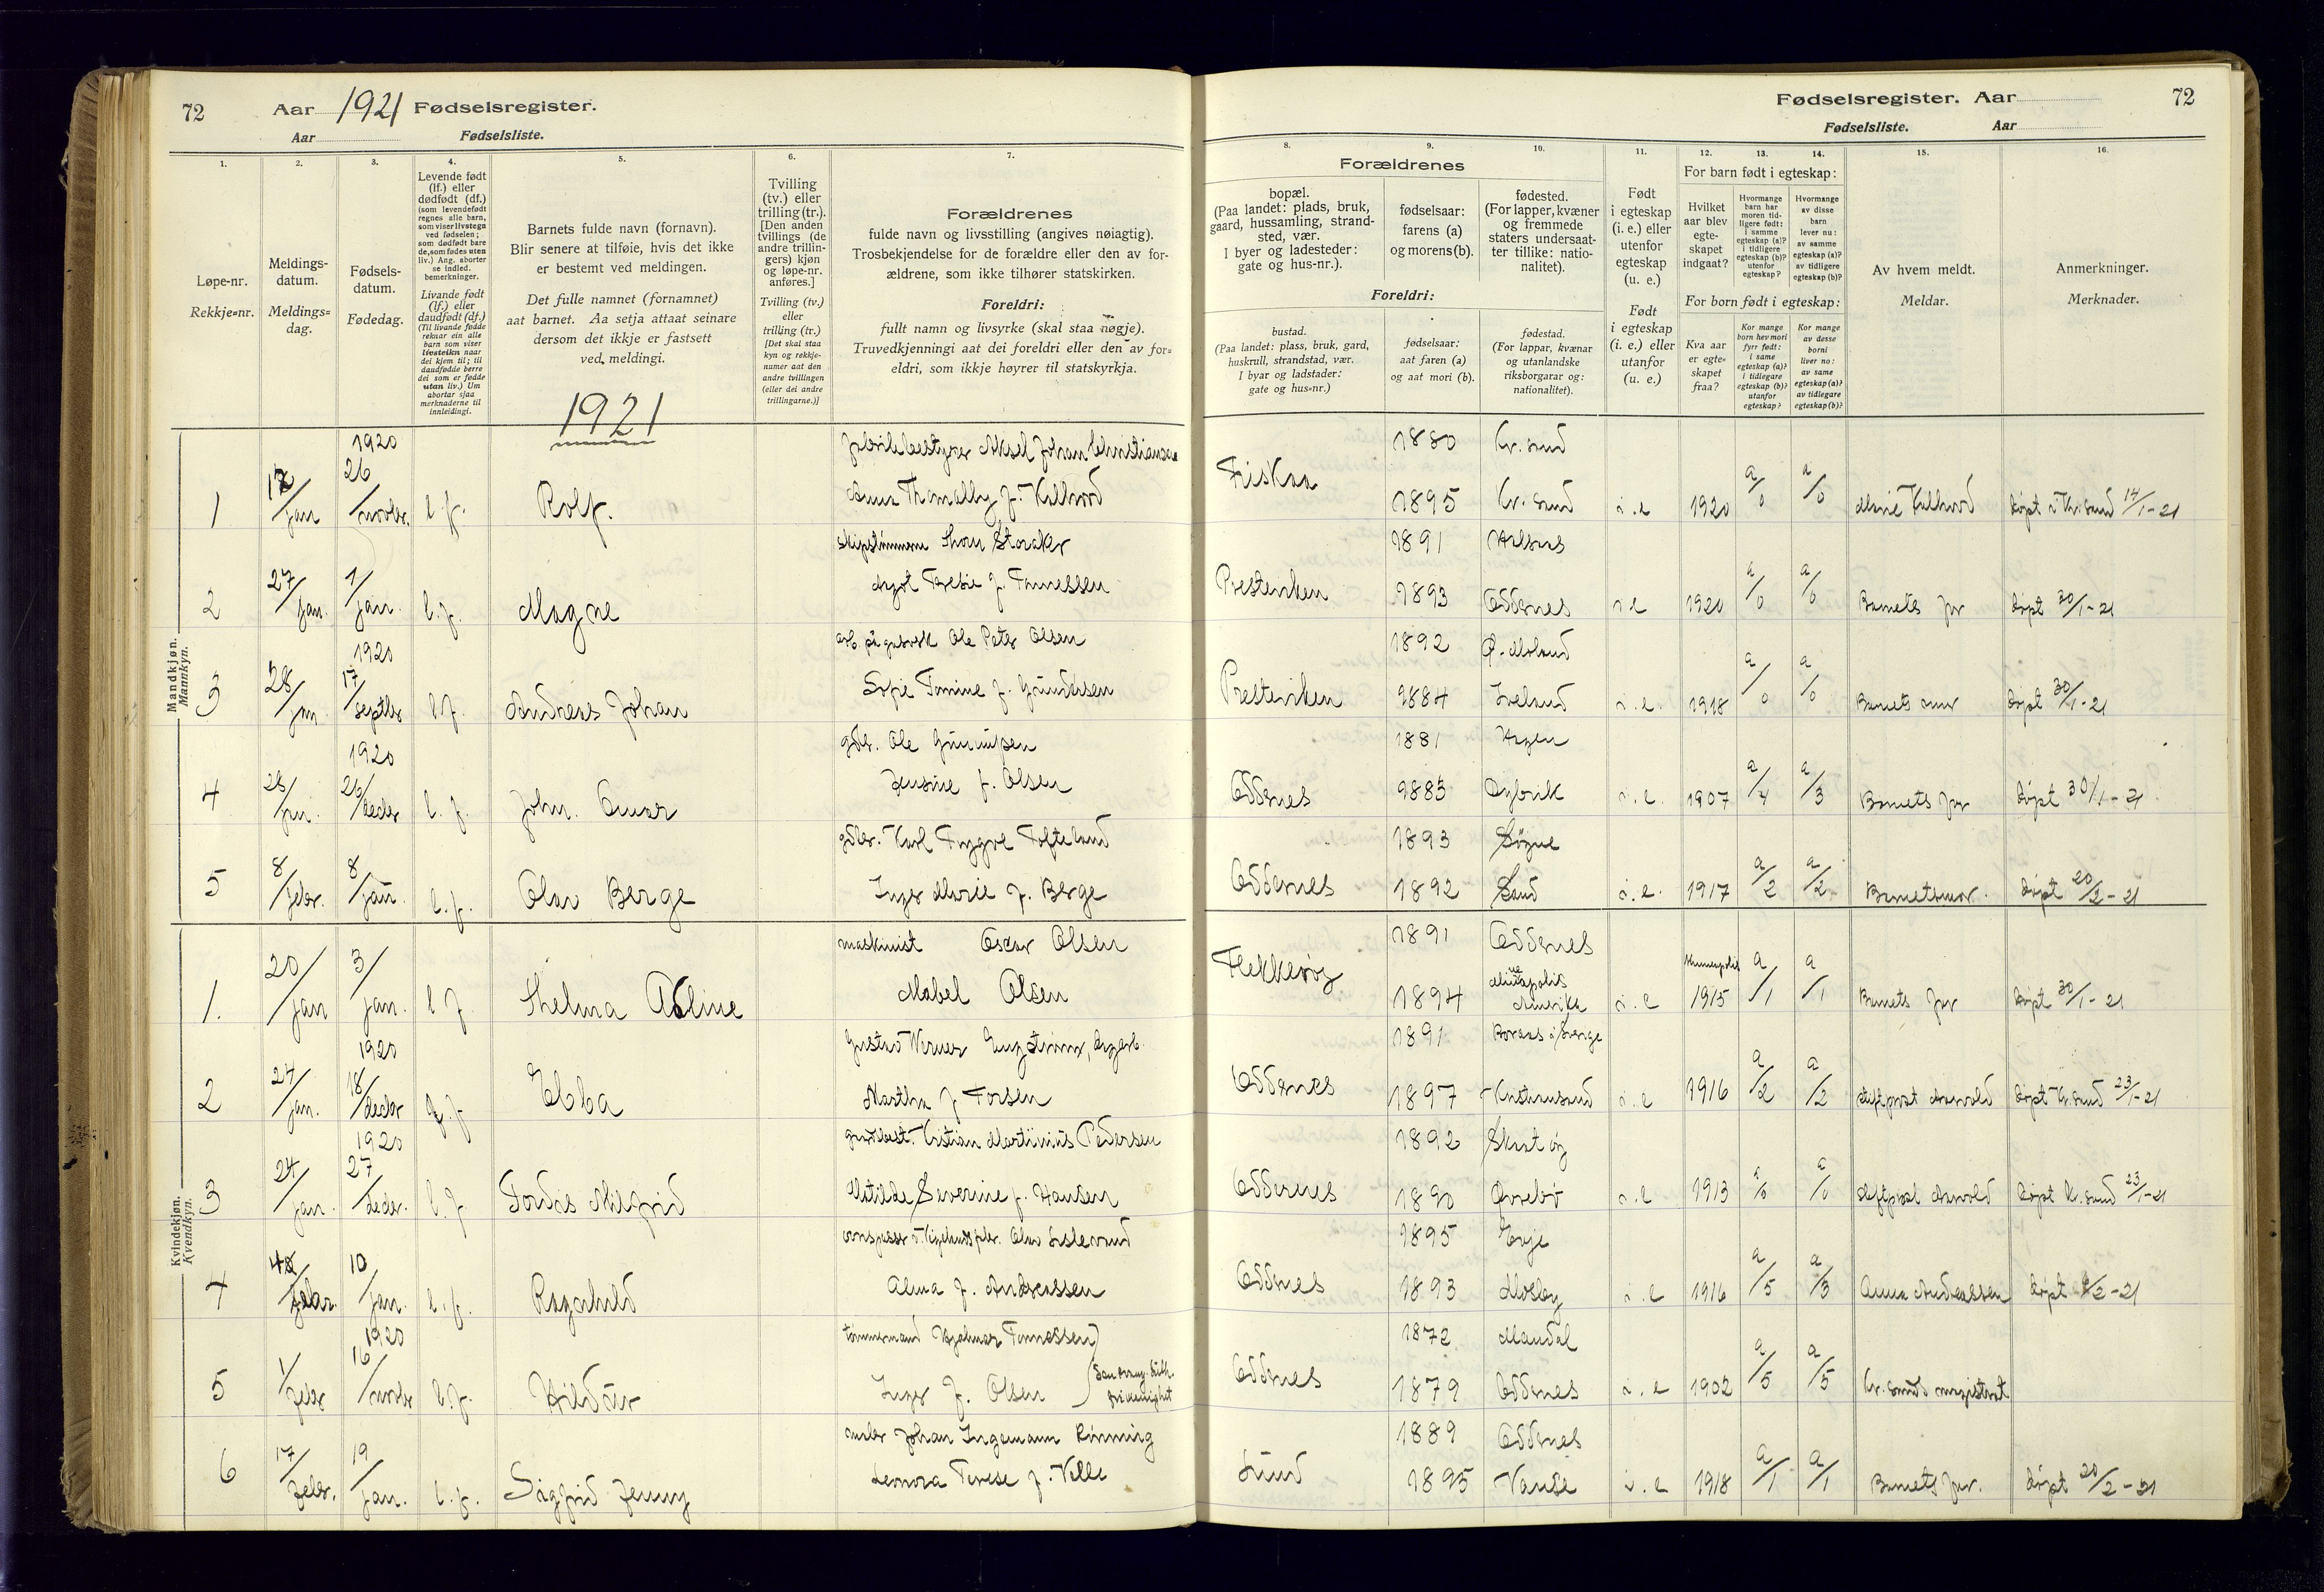 72 Aar 1921 Fødselsregister.
Aar Fødselsliste.
Fødselsregister. Aar 72
Fødselsliste. Aar
1. 2. 3. 4. 5. 6. 7.
8. 9. 10. 11. 12. 13. 14. 15. 16.
Løpe-nr.
Rekkje=nr.
Meldings-
datum.
Meldings=
dag.
Fødsels-
datum.
Fødedag.
Levende født
(lf.) eller
dødfødt (df.)
(som levendefødt
regnes alle barn,
som viser livstegn
ved fødselen;
som dødfødt bare
de, som fødes uten
liv.) Ang. aborter
se indled.
bemerkninger.
Livande født
(lf.) eller
daudfødt (df.)
(Til livande fødde
reknar ein alle
barn som viser
livsteikn naar
dei kjem til; til
daudfødde berre
dei som er fødde
utan liv.) Um
abortar sjaa
merknaderne til
innleidingi.
Barnets fulde navn (fornavn).
Blir senere at tilføie, hvis det ikke
er bestemt ved meldingen.
Det fulle namnet (fornamnet)
aat barnet. Aa setja attaat seinare
dersom det ikkje er fastsett
ved meldingi.
1921
Tvilling
(tv.) eller
trilling (tr.).
[Den anden
tvillings (de
andre trillin-
gers) kjøn
og løpe-nr.
anføres.]
Tvilling (tv.)
eller
trilling (tr.)
[Det skal staa
kyn og rekkje-
numer aat den
andre tvillingen
(eller dei andre
trillingarne.)]
Forældrenes
fulde navn og livsstilling (angives nøiagtig).
Trosbekjendelse for de forældre eller den av for-
ældrene, som ikke tilhører statskirken.
Foreldri:
fullt namn og livsyrke (skal staa nøgje).
Truvedkjenningi aat dei foreldri eller den av for=
eldri, som ikkje høyrer til statskyrkja.
Forældrenes
bopæl.
(Paa landet: plads, bruk,
gaard, hussamling, strand-
sted, vær.
I byer og ladesteder:
gate og hus-nr.).
fødselsaar:
farens (a)
og morens (b).
fødested.
(For lapper, kvæner
og fremmede
staters undersaat-
ter tillike: natio-
nalitet).
Foreldri:
bustad.
(Paa landet: plass, bruk, gard,
huskrull, strandstad, vær.
I byar og ladstader:
gate og hus=nr.)
fødselsaar:
aat faren (a)
og aat mori (b).
fødestad.
(For lappar, kvænar
og utanlandske
riksborgarar og:
nationalitet).
Født
i egteskap
(i. e.) eller
utenfor
egteskap
(u. e.)
Født
i egteskap
(i. e.) eller
utanfor
(u. e.)
For barn født i egteskap:
Hvilket
aar blev
egte-
skapet
indgaat?
Hvormange
barn har
moren tid-
ligere født:
i samme
egteskap (a)?
i tidligere
egteskap (b)?
utenfor
egteskap?
Hvormange
av disse
barn
lever nu:
av samme
egteskap (a)?
av tidligere
egteskap (b)?
For born født i egteskap:
Kva aar
er egte-
skapet
fraa?
Kor mange
born hev mori
fyrr født:
i same
egteskap (a)?
i tidlegare
egteskap (b)?
utanfor
egteskap?
Kor mange
av desse
borni
liver no:
av same
egteskap (a)?
av tidlegare
egteskap (b)?
Av hvem meldt.
Meldar.
Anmerkninger.
Merknader.
Mandkjøn.
Mannkyn.
1920 Aksel Johan Christiansen 1880 Kr.sand
1 jan 26/novbr. l.f. Rolf. Anna f. Kallvod Fiskaa 1895 Kr. sand i.e 1920 a/0 a/0 Kallvod døpt i Kr.sand 14/1-21
Storaker 1891
2 27/jan. 1/jan. l.f. Magne f. Tønnessen 1893 Oddernes i.e 1920 a/0 a/0 Barnets far døpt 30/1-21
1920 Ole Peter Olsen 1892
3 28/jan 17/septbr l.f. Andreas Johan Sofie Tomine f. Gundersen 1884 Iveland i.e. 1918 a/0 a/0 Barnets mor døpt 30/1-21
1920 gbr. Ole 1881
4 28/jan. 26/decbr l.f. John. Omar Jensine f. Olsen Oddernes 1885 i.e. 1907 a/4 a/3 Barnets far døpt 30/1-21
gbr. Karl Trygve Tofteland 1893 Søgne
5 8/febr. 8/jan. l.f. Olav Berge Inger Marie f. Berge Oddernes 1892 i.e. 1917 a/2 a/2 Barnets mor. døpt 20/2-21
Kvindekjøn.
Kvendkyn.
maskinist Oscar Olsen 1891 Oddernes
1. 20/jan 3/jan. l.f. Thelma Adline Mabel Olsen Flekkerøy 1894 Amerika i.e 1915 a/1 a/1 Barnets far døpt 30/1-21
1920 Gustav Werner 1891 Boraas i Sverige
2 24/jan. 18/decbr l.f. Ebba Martha f Torsen Oddernes 1897 Kristiansand i.e 1916 a/2 a/2 stiftprost døpt Kr.sand 23/1-21
1920 Kristian Martinius Pedersen 1892
3 24/jan. 27/decbr. l.f. Tordis Milfrid Matilde Severine f. Hansen Oddernes 1890 Øvrebø i.e 1913 a/0 a/0 stiftprost døpt Kr.sand 23/1-21
Olav 1895 Evje
4 febr. 10/jan. l.f. Ragnhild Alma f. Andreassen Oddernes 1893 Mosby i.e 1916 a/5 a/3 Anna Andreassen døpt /2-21
1920 tømmermand Hjalmar Tønnessen 1872 Mandal
5 1/febr 16/novbr l.f. Hildur Inger f. Olsen Oddernes 1879 Oddernes i.e 1902 a/5 a/5 Kr.sands magistrat
maler Johan Ingemann Rønning 1889 Oddernes
6 17/febr. 19/jan. l.f. Sigfrid Jenny Leonora Terese f. Lund 1895 Vanse i.e 1918 a/1 a/1 Barnets far. døpt 20/2-21